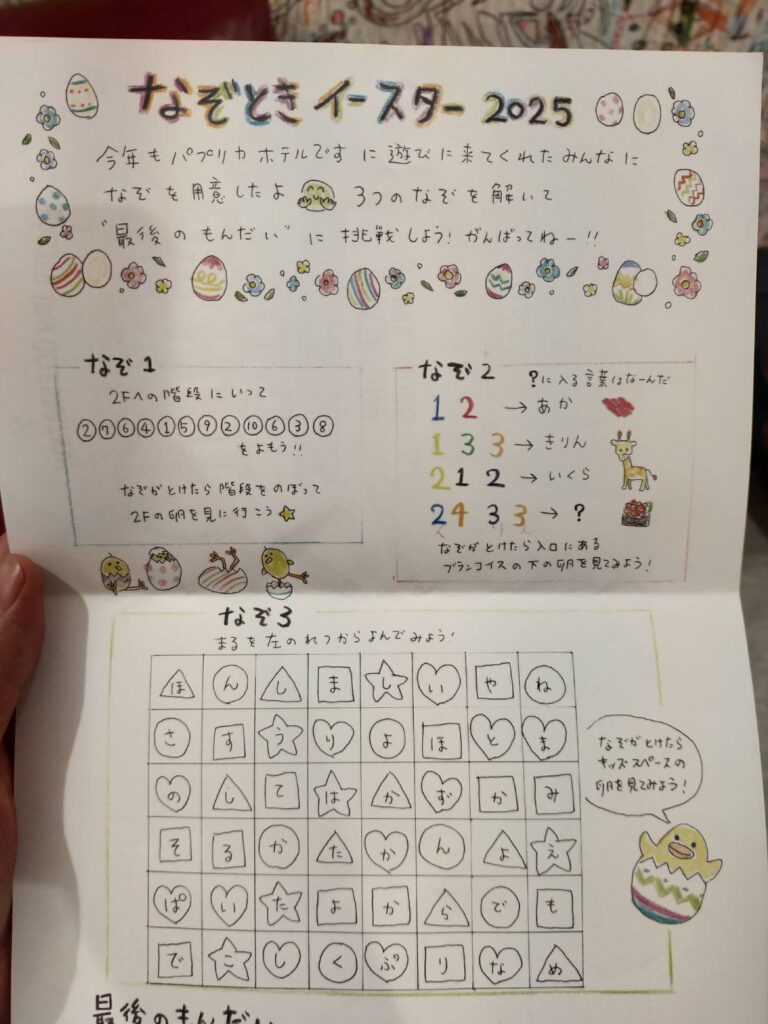 なぞときイースター 2025
今年もパプリカホテルですに遊びに来てくれたみんなに
なぞを用意したよ 3つのなぞを解いて
"最後のもんだい"に挑戦しよう!がんばってねー!!
なぞ1
2Fへの階段にいって
②⑦⑥④①⑤⑨②⑩⑥③⑧
をよもう!!
なぞがとけたら階段をのぼって
2Fの卵を見に行こう
なぞ2
?に入る言葉はなーんだ
1 2 → あか
1 3 3 → きりん
2 1 2 → いくら
2 4 3 3 → ?
なぞがとけたら入口にある
ブランコイスの下の卵を見てみよう!
なぞ3
まるを左のれつからよんでみよう!
ほ ん し ま し い や ね
さ す う り よ ほ と ま
の し て は か ず か み
そ る か た か ん よ え
ぱ い た よ か ら で も
で こ し く ぷ り な め
なぞがとけたら
キッズスペースの
卵を見てみよう!
最後のもんだい